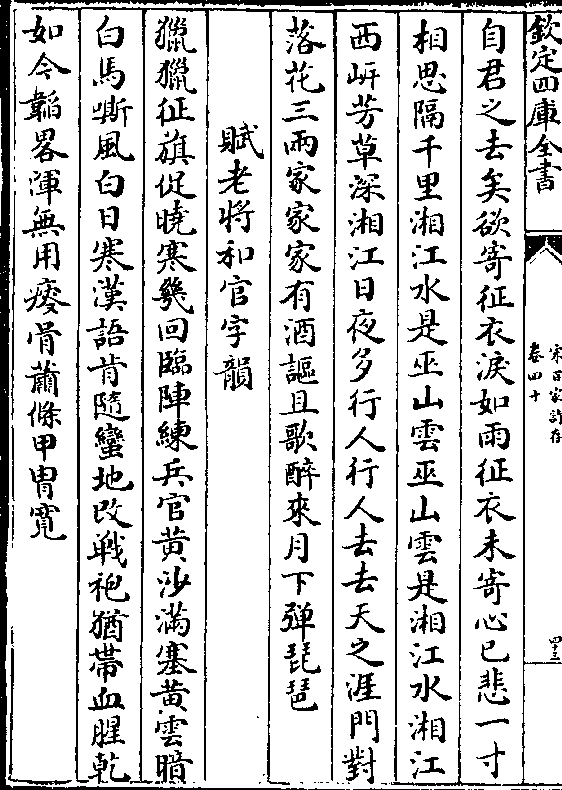 欽定四庫全書
宋百家詩存
卷四十
四十三
自君之去矣欲寄征衣淚如雨征衣未寄心已悲一寸
相思隔千里湘江水是巫山雲巫山雲是湘江水湘江
西㟁芳草深湘江日夜多行人行人去去天之涯門對
落花三兩家家家有酒謳且歌醉來月下彈琵琶
賦老將和官字韻
獵獵征旗促曉寒幾回臨陣練兵官黄沙滿塞黄雲暗
白馬嘶風白日寒漢語肯隨蠻地改戰袍猶帶血腥乾
如今韜畧渾無用瘦骨蕭條甲胄寛